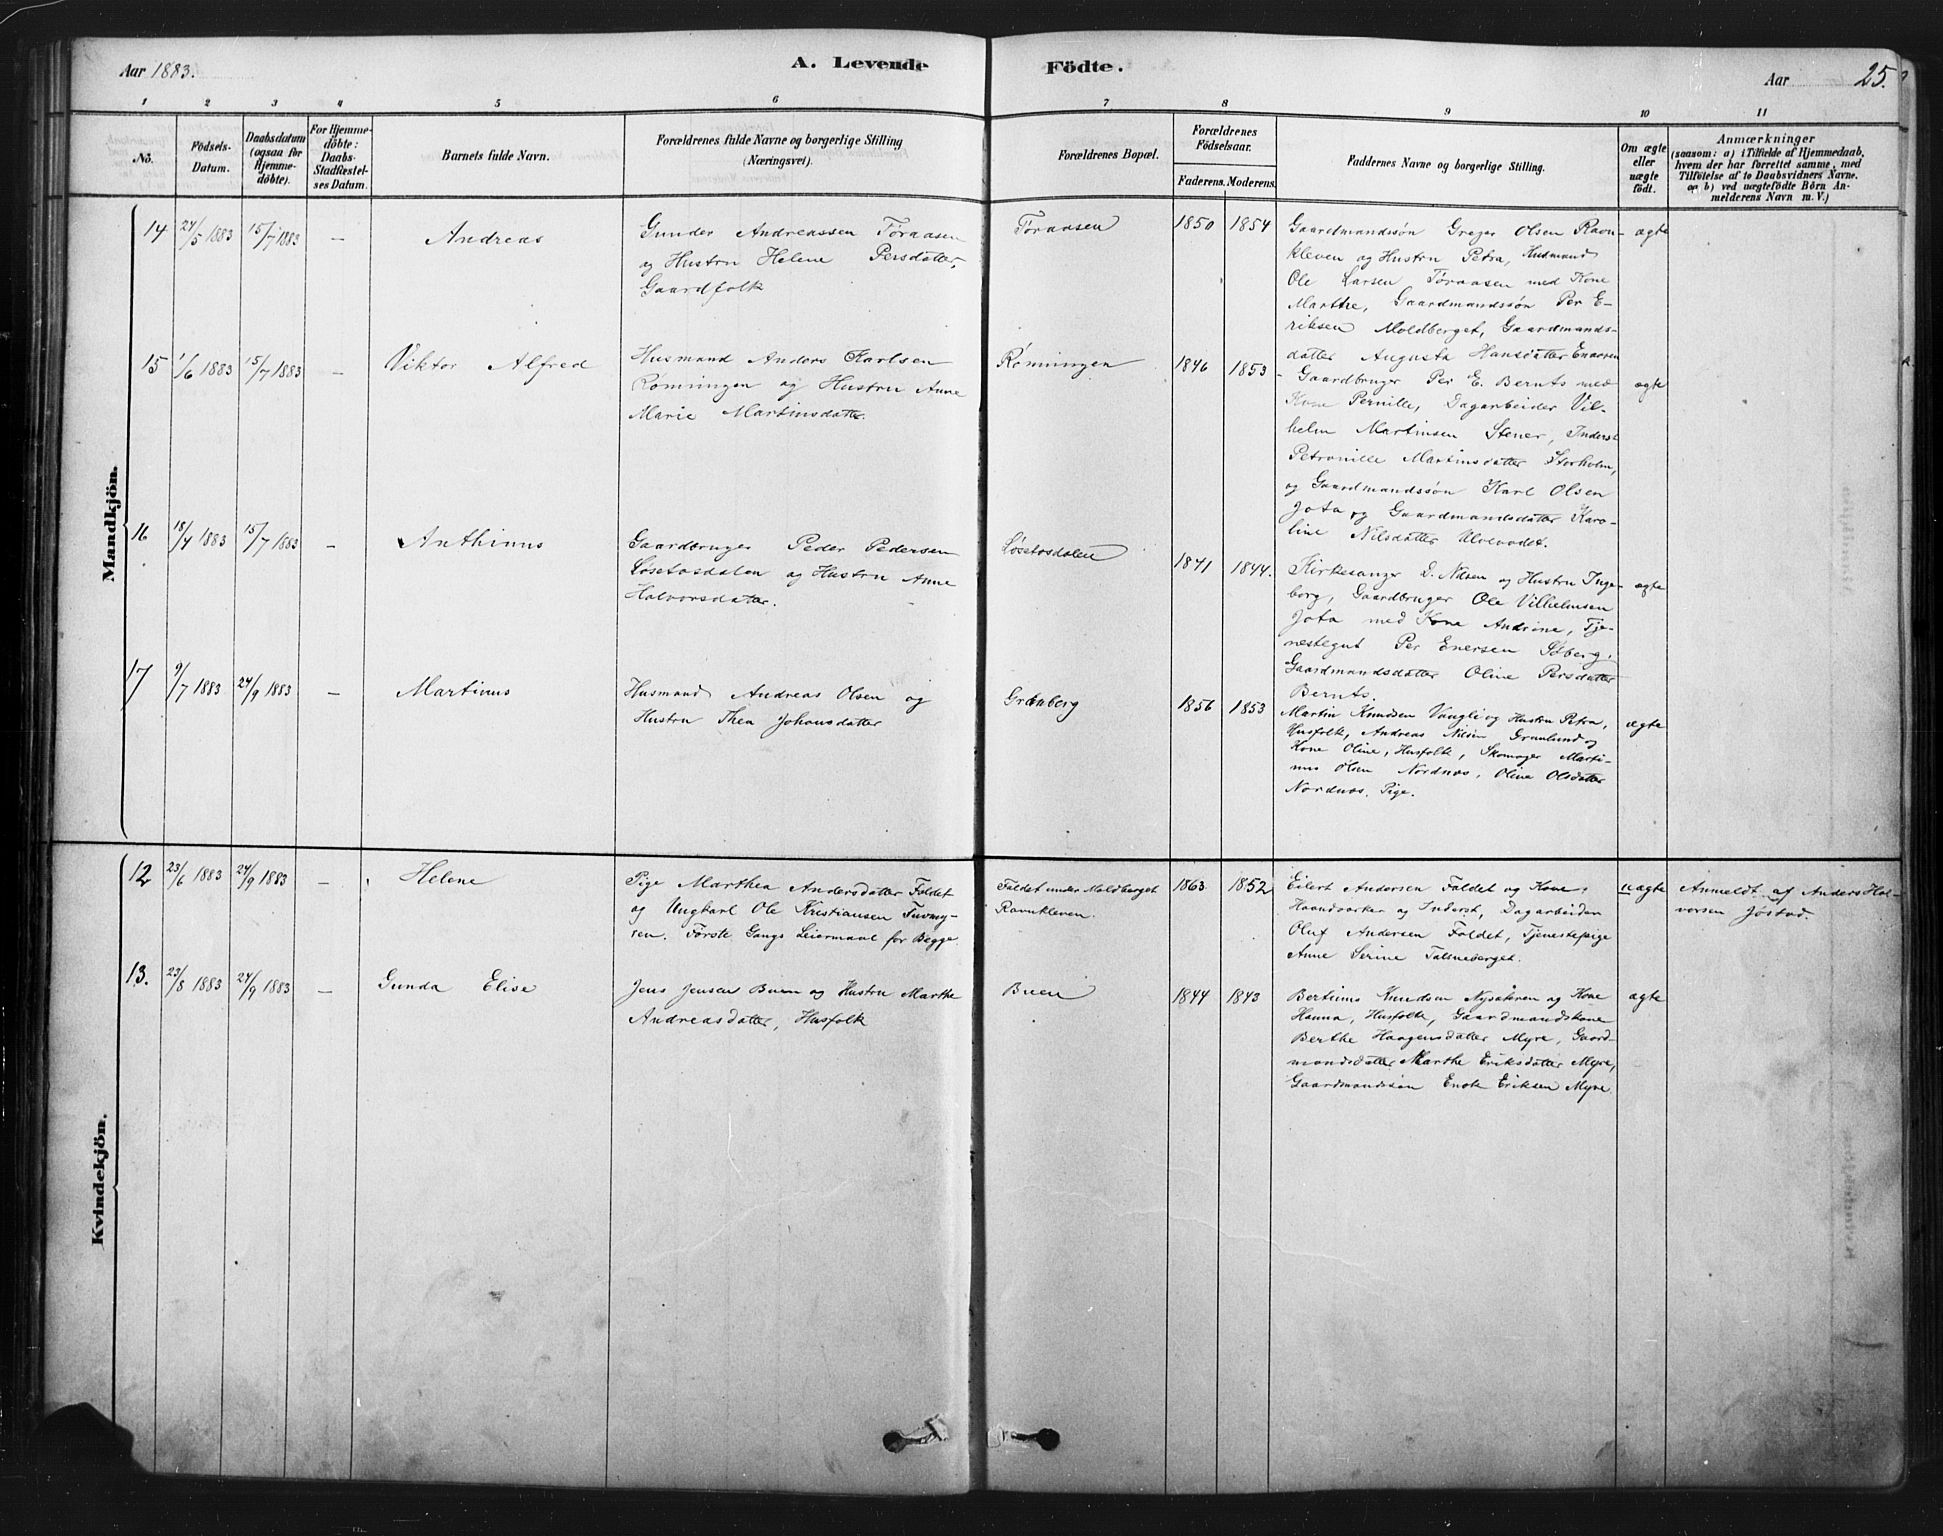 Aar 1883.
A. Levende
Födte.
Aar
25.
1 2 3 4 5 6 7 8 9 10 11
No.
Födsels-
Datum.
Daabsdatum
(ogsaa for
Hjemme-
döbte).
For Hjemme-
döbte:
Daabs-
Stadfæstel-
ses Datum.
Barnets fulde Navn.
Forældrenes fulde Navne og borgerlige Stilling
(Næringsvei).
Forældrenes Bopæl.
Forældrenes
Födselsaar.
Faderens. Moderens.
Faddernes Navne og borgerlige Stilling.
Om ægte
eller
uægte
födt.
Anmærkninger
(saasom: a) i Tilfælde af Hjemmedaab,
hvem der har forrettet samme, med
Tilföielse af to Daabsvidners Navne.
og b) ved uægtefödte Börn An-
melderens Navn m. V.)
Mandkjön.
14 24/5 1883 15/7 1883 — Andreas
Gunder Andreassen Töraasen
og Hustru Helene Persdatter,
Gaardfolk
Töraasen
1850 1854
Gaardmandssön Greger Olsen Ravn-
kleven og Hustru Petra, Husmand
Ole Larsen Töraasen med Kone
Marthe, Gaardmandssön Per E-
riksen Moldberget, Gaardmands-
datter Augusta Hansdatter
ægte
15 1/6 1883 15/7 1883 — Viktor Alfred
Husmand Anders Karlsen
Rømningen og Hustru Anne
Marie Martinsdatter.
Rømningen
1846 1853
Gaardbruger Per E. Bernts med
Kone Pernille, Dagarbeider Vil-
helm Martinsen Stener, Inderst
Petronille Martinsdatter Storholm,
og Gaardmandssön Karl Olsen
Jota og Gaardmandsdatter Karo-
line Nilsdatter Ulvevadet.
ægte
16 18/4 1883 15/7 1883 — Anthinus
Gaardbruger Peder Pedersen
Løsetosdalen og Hustru Anne
Halvorsdatter.
Løsetosdalen
1841 1844.
Kirkesanger D. Nilsen og Hustru Inge-
borg, Gaardbruger Ole Vilhelmsen
Jota med Kone Andrine, Tje-
nestegut Per Enersen Søberg,
Gaardmandsdatter Oline Persdatter
Bernts.
ægte
17 9/7 1883 24/9 1883 — Martinus
Husmand Andreas Olsen og
Hustru Thea Johansdatter
Grønberg
1856 1853
Martin Knudsen Vangli og Hustru Petra,
Husfolk, Andreas Nilsen Granlund og
Kone Oline, Husfolk, Skomager Marti-
nus Olsen Nordnæs, Oline Olsdatter
Nordnæs. Pige.
ægte
Kvindekjön.
12 23/6 1883 24/9 1883 — Helene
Pige Marthea Andersdatter Faldet
og Ungkarl Ole Kristiansen Tuvmy-
ren. Første Gangs Leiermaal for Begge
Faldet under Moldberget
Ravnkleven.
1863 1852
Eilert Andersen Faldet og Kone,
Haandværker og Inderst, Dagarbeider
Oluf Andersen Faldet, Tjenestepige
Anne Serine
uægte
Anmeldt af Anders Hal-
vorsen Jøstad.
13. 23/8 1883 24/9 1883 — Gunda Elise
Jens Jensen Buen og Hustru Marthe
Andreasdatter, Husfolk
Buen
1844 1843
Bertinus Knudsen Nysæteren og Kone
Hanna, Husfolk, Gaardmandskone
Berthe Haagensdatter Myre, Gaard-
mandsdatter Marthe Eriksdatter Myre,
Gaardmandssøn Enok Eriksen Myre
ægte